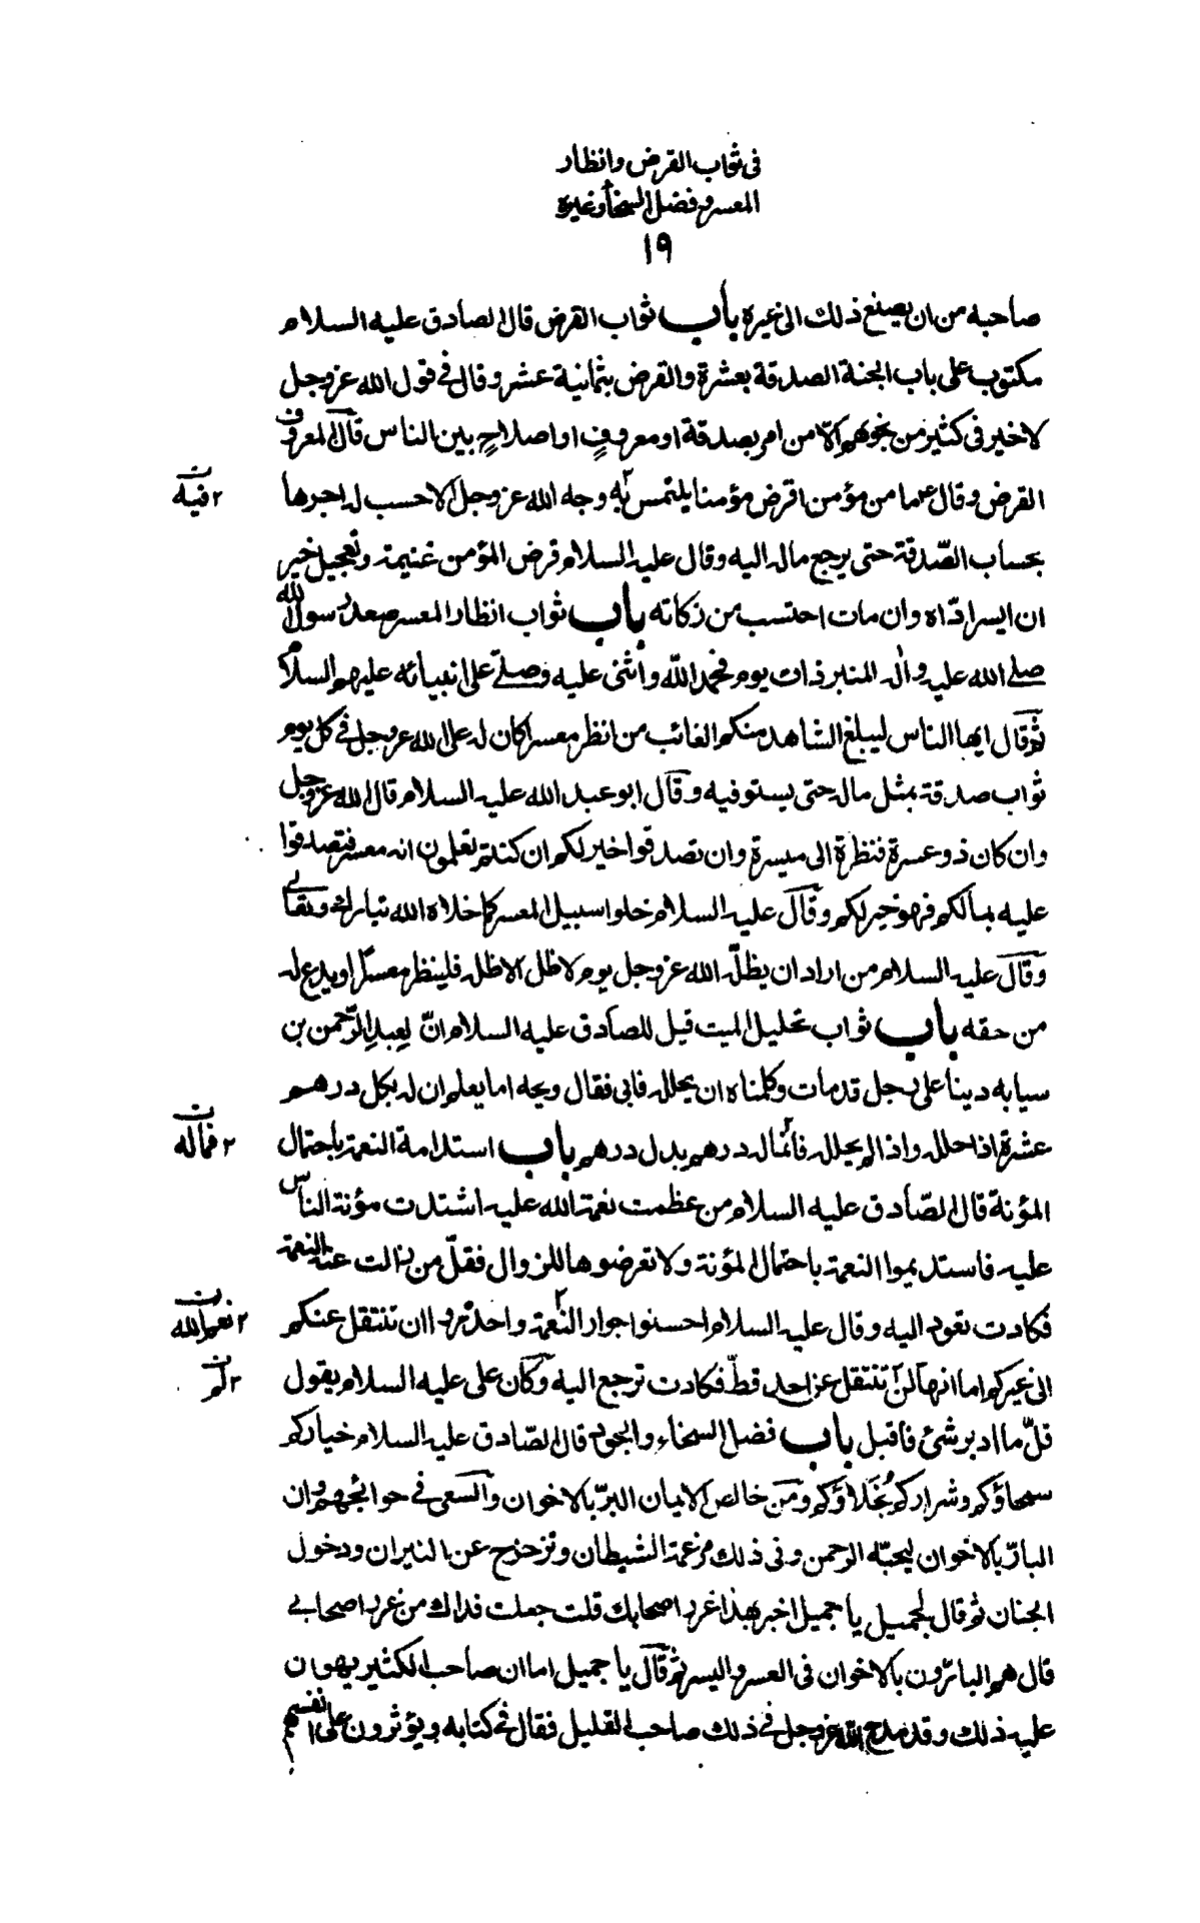 فى ثواب القرض وانظار
المعسر وفضل السخاء وغيره
١٩
صاحبه من ان يصنع ذلك الى غيره باب ثواب القرض قال الصادق عليه السلام
مكتوب على باب الجنة الصدقة بعشرة والقرض بثمانية عشر وقال فى قول الله عز وجل
لا خير فى كثير من نجويهم الّا من امر بصدقة او معروفٍ او اصلاحٍ بين الناس قال المعروف
القرض وقال ع ما من مؤمن اقرض مؤمنا يلتمس به وجه الله عز وجل الا حسب له اجرها
٢ فيه ن
بحساب الصّدقة حتى يرجع ماله اليه وقال عليه السلام قرض المؤمن غنيمة وتعجيل خير
ان ايسر ادّاه وان مات احتسب من زكاته باب ثواب انظار المعسر صعد رسول الله
صلى الله عليه واله المنبر ذات يوم فحمد الله واثنى عليه وصلى على انبيائه عليهم السلام
ثم قال ايها الناس ليبلغ الشاهد منكم الغائب من انظر معسرا كان له على الله عز وجل فى كل يوم
ثواب صدقة بمثل ماله حتى يستوفيه وقال ابو عبد الله عليه السلام قال الله عز وجل
وان كان ذو عسرة فنظرة الى ميسرة وان تصدقوا خير لكم ان كنتم تعلمون انه معسر فتصدقوا
عليه بمالكم فهو خير لكم وقال عليه السلام خلوا سبيل المعسر كما خلاه الله تبارك وتعالى
وقال عليه السلام من اراد ان يظلّه الله عز وجل يوم لا ظل الا ظله فلينظر معسرا او يدع له
من حقه باب ثواب تحليل الميت قيل للصادق عليه السلام انّ لعبد الرّحمن بن
سيابه دينا على رجل قد مات وكلمناه ان يحلله فابى فقال ويحه اما يعلم ان له بكل درهم
عشرة اذا حلله واذا لم يحلله فانما له درهم بدل درهم باب استدامة النعمة باحتمال
٢ فماله ن
المؤنة قال الصّادق عليه السلام من عظمت نعمة الله عليه اشتدت مؤنة الناس
عليه فاستديموا النعمة باحتمال المؤنة ولا تعرضوها للزوال فقلّ من زالت عنه النعمة
فكادت تعود اليه وقال عليه السلام احسنوا جوار النعمة واحذروا ان تنتقل عنكم
٢ نعم الله ن
الى غيركم اما انها لن تنتقل عن احد قطّ فكادت ترجع اليه وكان على عليه السلام يقول
٢ لم ن
قلّ ما ادبر شئ فاقبل باب فضل السخاء والجود قال الصّادق عليه السلام خياركم
سمحاؤكم وشراركم بُخَلاؤكم ومن خالص الايمان البرّ بالاخوان والسعى فى حوائجهم وان
البارّ بالاخوان ليحبّه الرحمن وفى ذلك مرغمة الشيطان وتزحزح عن النيران ودخول
الجنان ثم قال لجميل يا جميل اخبر بهذا غرر اصحابك قلت جعلت فداك من غرر اصحابى
قال هم البارّون بالاخوان فى العسر واليسر ثم قال يا جميل اما ان صاحب الكثير يهون
عليه ذلك وقد مدح الله عز وجل فى ذلك صاحب القليل فقال فى كتابه ويؤثرون على انفسهم